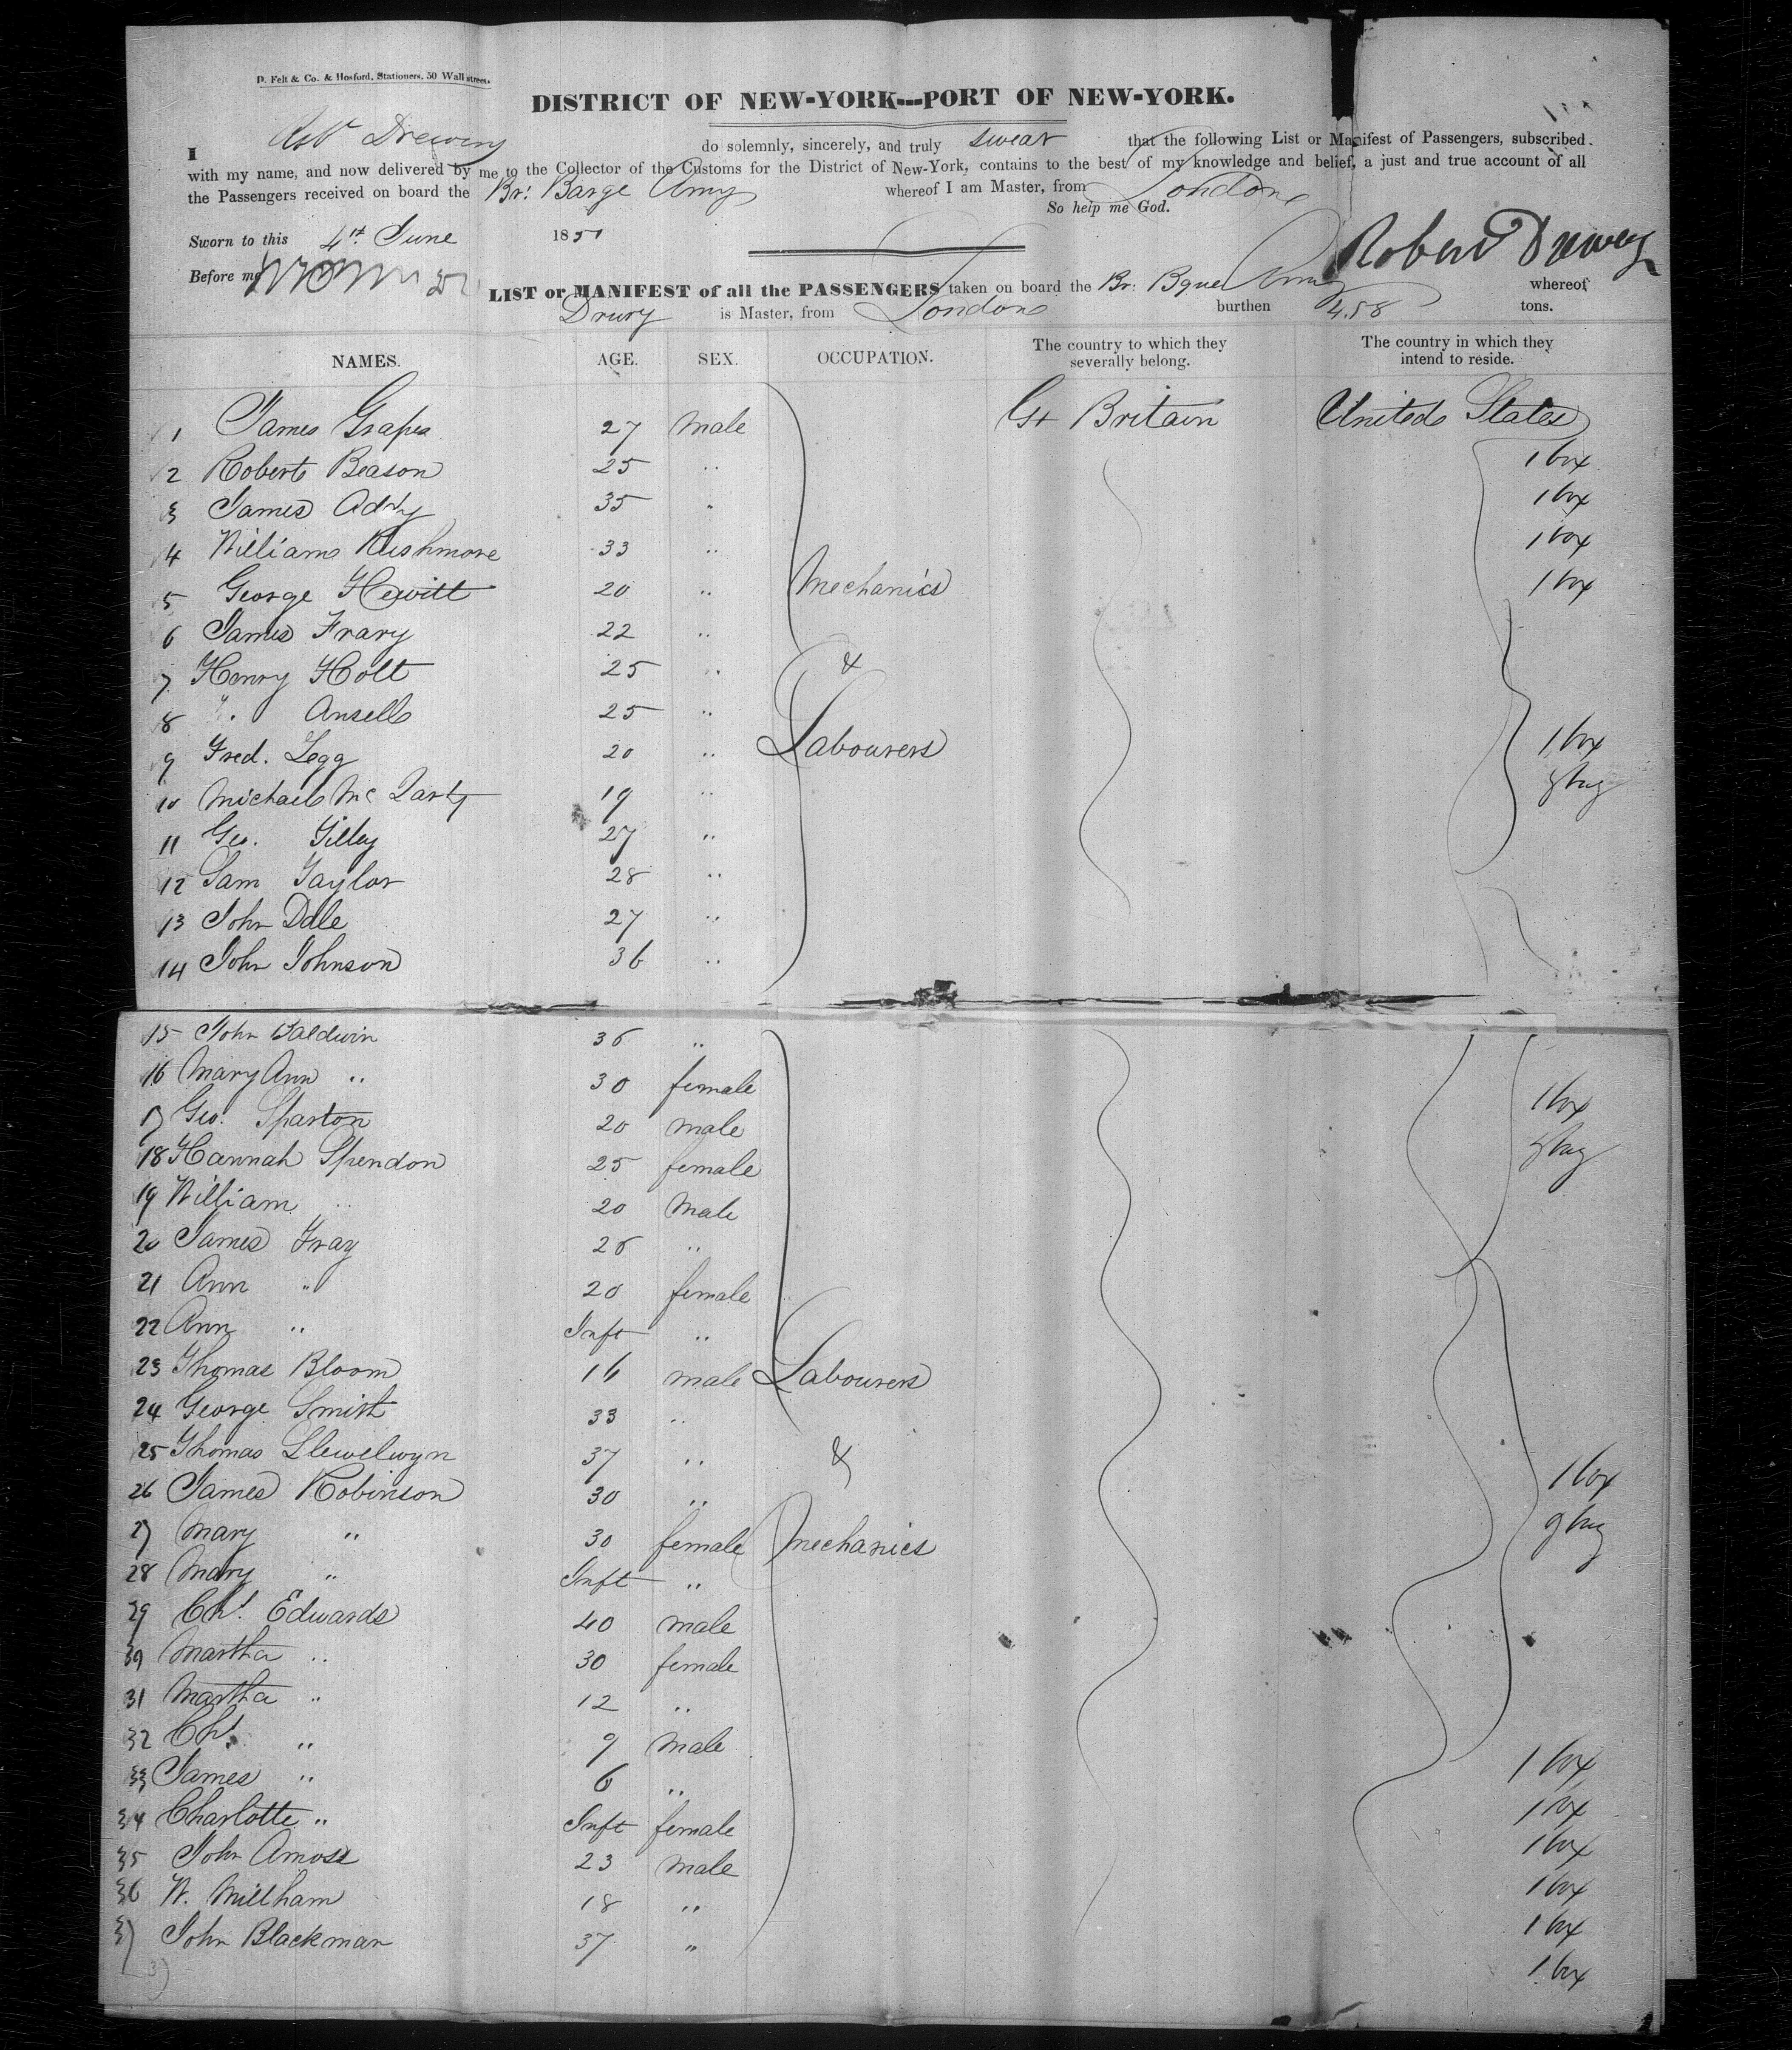 D. Felt & Co. & Hosford, Stationers, 50 Wall street.
DISTRICT OF NEW-YORK---PORT OF NEW-YORK.
I Robt Drewery do solemnly, sincerely, and truly swear that the following List or Manifest of Passengers, subscribed
with my name, and now delivered by me to the Collector of the Customs for the District of New-York, contains to the best of my knowledge and belief, a just and true account of all
the Passengers received on board the Br: Barge Amy whereof I am Master, from London
So help me God.
Sworn to this 4th June 1851
Robert Drewery
Before me
LIST or MANIFEST of all the PASSENGERS taken on board the Br: Bque Amy whereof
Drury is Master, from London burthen 458 tons.
NAMES. AGE. SEX. OCCUPATION. The country to which they severally belong. The country in which they intend to reside.
1 James Grapes 27 Male Gt Britain United States
2 Robert Beason 25 " 1 box
3 James Addy 35 " 1 box
4 William Rushmore 33 " 1 box
5 George Hewitt 20 " Mechanics 1 box
6 James Frary 22 "
7 Henry Holt 25 " &
8 " Ansell 25 "
9 Fred. Legg 20 " Labourers 1 box
10 Michael Mc Larty 19 " & bag
11 Geo. Tilley 27 "
12 Sam Taylor 28 "
13 John Dale 27 "
14 John Johnson 36 "
15 John Baldwin 36 "
16 Mary Ann " 30 female 1 box
17 Geo. Sparton 20 male
18 Hannah Spendon 25 female & bag
19 William " 20 Male
20 James Fray 26 "
21 Ann " 20 female
22 Ann " Inft "
23 Thomas Bloom 16 male Labourers
24 George Smith 33 "
25 Thomas Llewelwyn 37 " & 1 box
26 James Robinson 30 "
27 Mary " 30 female Mechanics & bag
28 Mary " Inft "
29 Chs. Edwards 40 male
30 Martha " 30 female
31 Martha " 12 "
32 Chs. " 9 Male
33 James " 6 " 1 box
34 Charlotte " Inft female 1 box
35 John Amoss 23 Male 1 box
36 W. Millham 18 " 1 box
37 John Blackman 37 " 1 box
1 box